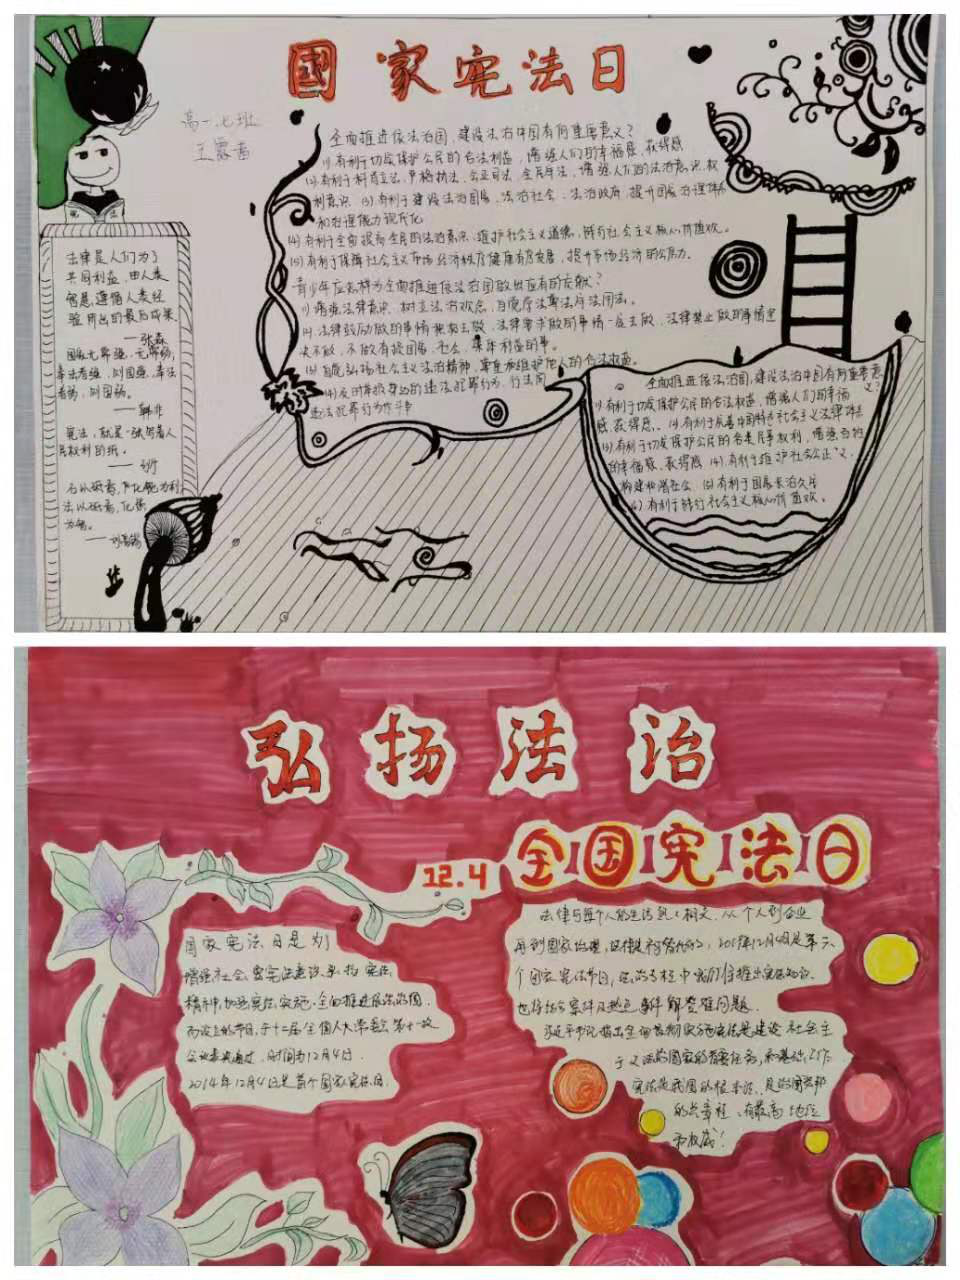 國家宪法日
高一七班
王露茜
全面推进依法治国,建设法治中国有何重要意义?
(1)有利于切实保护公民的合法利益,增强人们的幸福感、获得感
(2)有利于科学立法、严格执法、公正司法、全民守法,增强人们的法治意识、权
利意识. (3)有利于建设法治国家、法治社会、法治政府,提升国家治理体系
和治理能力现代化
(4)有利于全面提高全民的法治意识,维护社会主义道德,践行社会主义核心价值观。
(5)有利于保障社会主义市场经济秩序健康有序发展,提升市场经济的公信力。
青少年应怎样为全面推进依法治国做出应有的贡献?
(1)增强法律意识,树立法治观念,自觉学法尊法守法用法。
(2)法律鼓励做的事情积极去做,法律要求做的事情一定去做,法律禁止做的事情坚
决不做,不做有损国家、社会、集体利益的事。
(3)自觉弘扬社会主义法治精神,尊重和维护他人的合法权益。
(4)及时举报身边的违法犯罪行为,行法同
违法犯罪行为作斗争
法律是人们为了
共同利益,由人类
智慧遵循人类经
验所出的最后成果
——张森
国无常强,无常弱,
奉法者强,则国强,奉法
者弱,则国弱。
——韩非
宪法,就是一张写着人
民权利的纸。
——列宁
全面推进依法治国,建设法治中国有何重要意
义?
(1)有利于切实保护公民的合法权益,增强人们的幸福
感、获得感。 (2)有利于完善中国特色社会主义法律体系
(3)有利于切实保护公民的各类民事权利,增强百姓
的幸福感、获得感 (4)有利于维护社会公正义,
构建和谐社会 (5)有利于国家长治久安
(6)有利于践行社会主义核心价值观。
弘扬法治
12.4
全国宪法日
国家宪法日是为了
增强社会,宪法意识,弘扬宪法
精神,加强宪法实施,全面推进依法治国
而设立的节日,于十二届全国人大常委会第十一次
会议表决通过,时间为12月4日.
2014年12月4日是首个国家宪法日.
法律与每个人的生活息息相关.从个人到企业
再到国家治理,法律是不可替代的,2019年12月4日是第六
个国家宪法节日,
也将结合案件及热点事件解答难问题.
习近平书记指出全面贯彻实施宪法是建设社会主
义法治国家的首要任务和基础工作
宪法是我国的根本法,是治国安邦
的总章程,有最高地位
和权威!